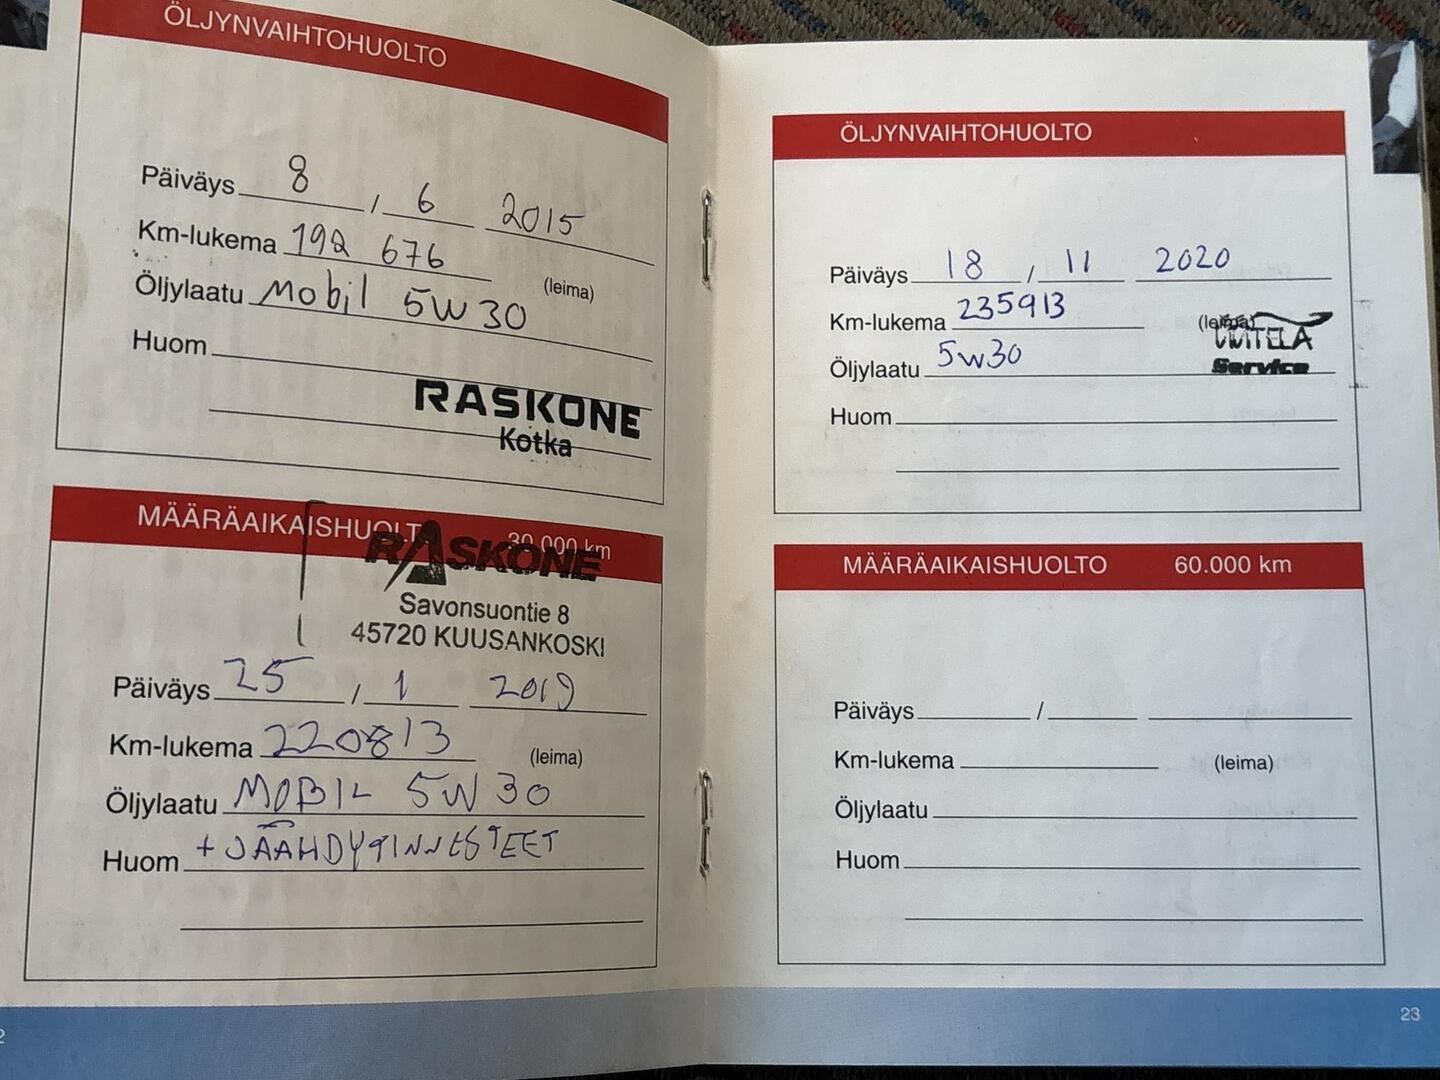 ÖLJYNVAIHTOHUOLTO
Päiväys 8 / 6 2015
Km-lukema 192 676
(leima)
Öljylaatu Mobil 5W30
Huom
RASKONE
Kotka
MÄÄRÄAIKAISHUOLTO 30.000 km
RASKONE
Savonsuontie 8
45720 KUUSANKOSKI
Päiväys 25 / 1 2019
Km-lukema 220813
(leima)
Öljylaatu MOBIL 5W30
Huom + JÄÄHDYTINNESTEET
ÖLJYNVAIHTOHUOLTO
Päiväys 18 / 11 2020
Km-lukema 235913
(leima)
Öljylaatu 5w30
Service
Huom
MÄÄRÄAIKAISHUOLTO 60.000 km
Päiväys /
Km-lukema
(leima)
Öljylaatu
Huom
2
23